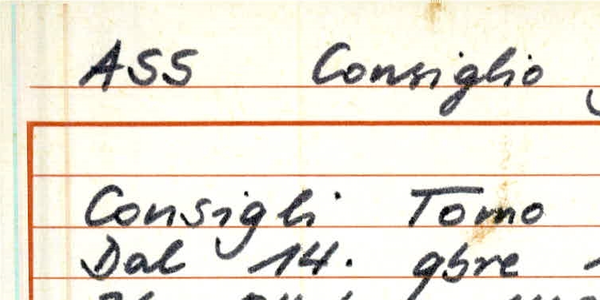 ASS Consiglio
Consigli Tomo
Dal 14. 9bre